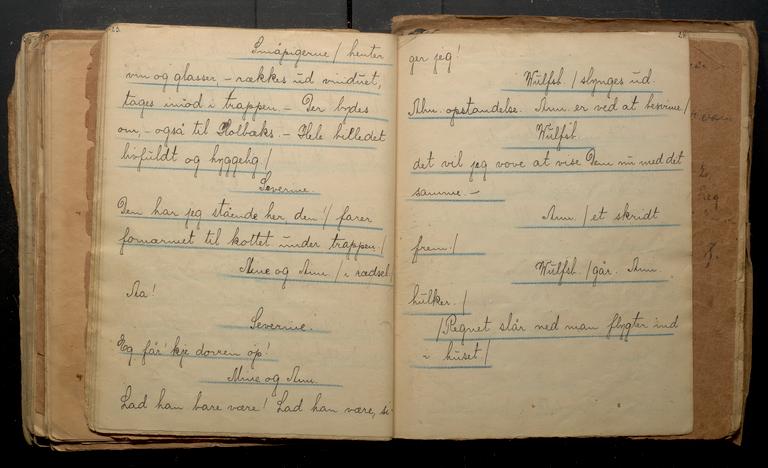 23.
Småpigerne / henter
vin og glasser, – rækkes ud vinduet,
tages imod i trappen. – Der bydes
om, – også til Holbæks. – Hele billedet
livfuldt og hyggelig /
Severine.
Den har jeg stående her, den! / farer
fornarmet til kottet under trappen. /
Mine og Ann. / i rædsel /
Aa!
Severine.
Eg får' kje dorren op!
Mine og Ann.
Lad han bare være! Lad han være, si-
24.
ger jeg!
Wulfsb. / slynges ud.
Alm. opstandelse. Ann. er ved at besvime /
Wulfsb.
det vil jeg vove at vise Dem nu med det
samme. –
Ann. / et skridt
frem. /
Wulfsb. / går. Ann.
hulker. /
/ Regnet slår ned man flygter ind
i huset /